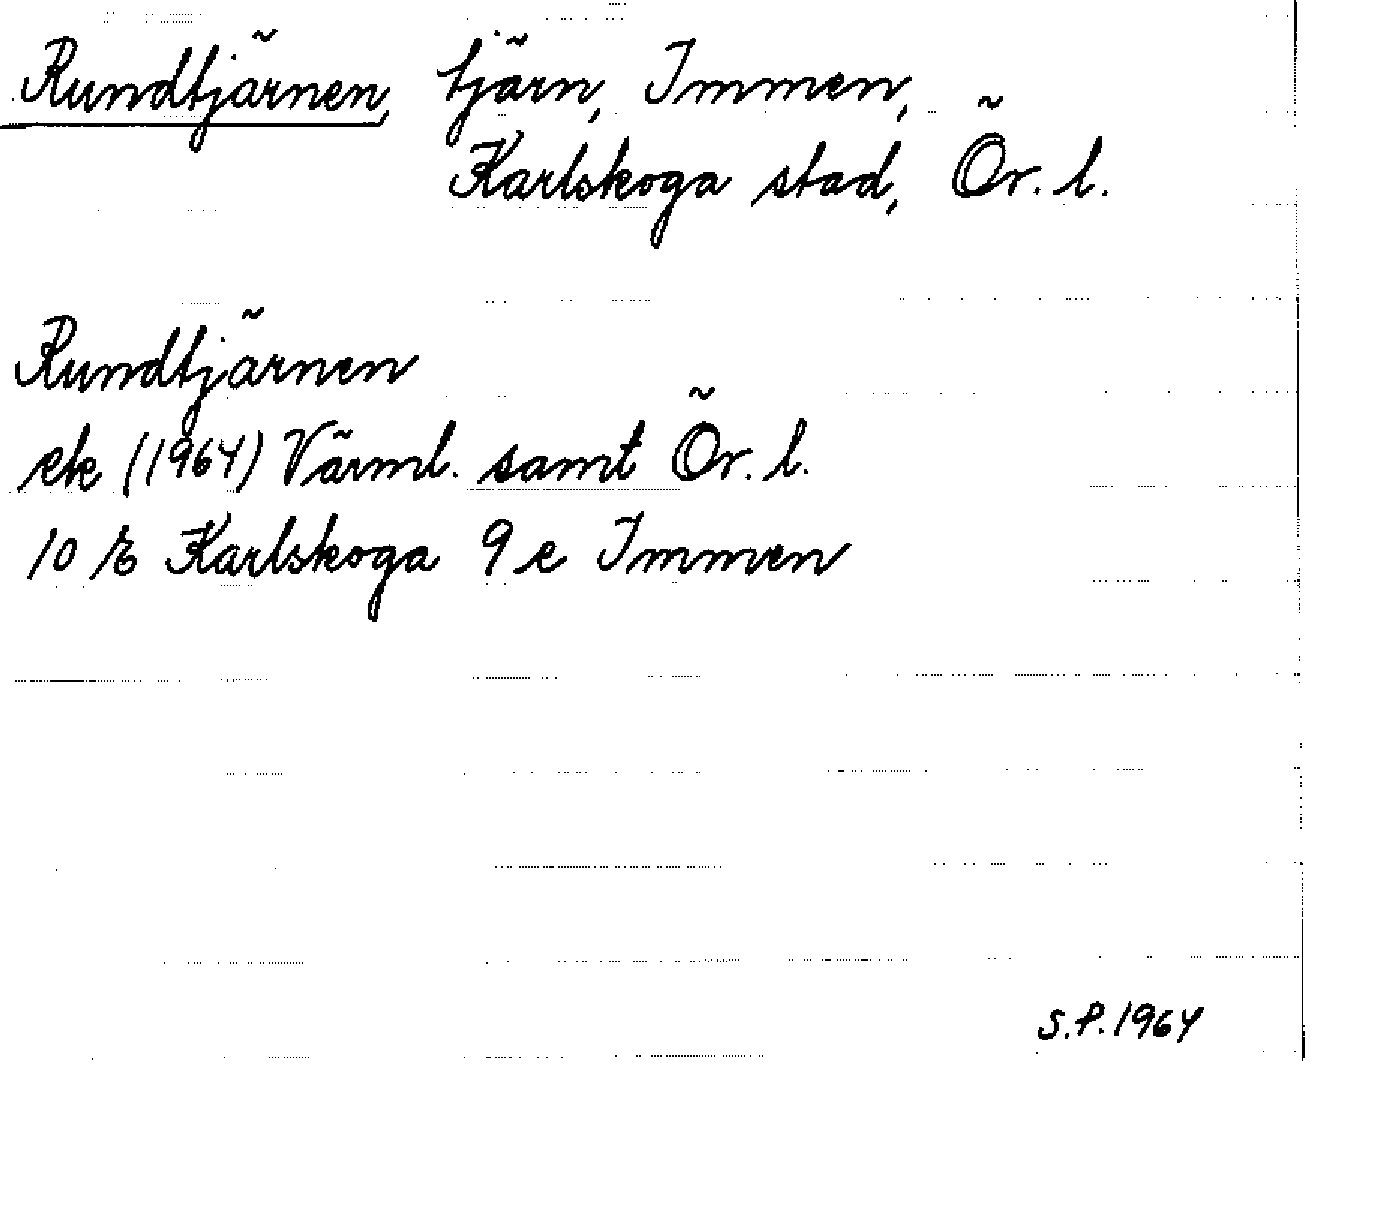 Rundtjärnen, tjärn, Immen,
Karlskoga stad, Ör. l.
Rundtjärnen
ek (1964) Värml. samt Ör. l.
10 E Karlskoga 9 e Immen
S.P. 1964